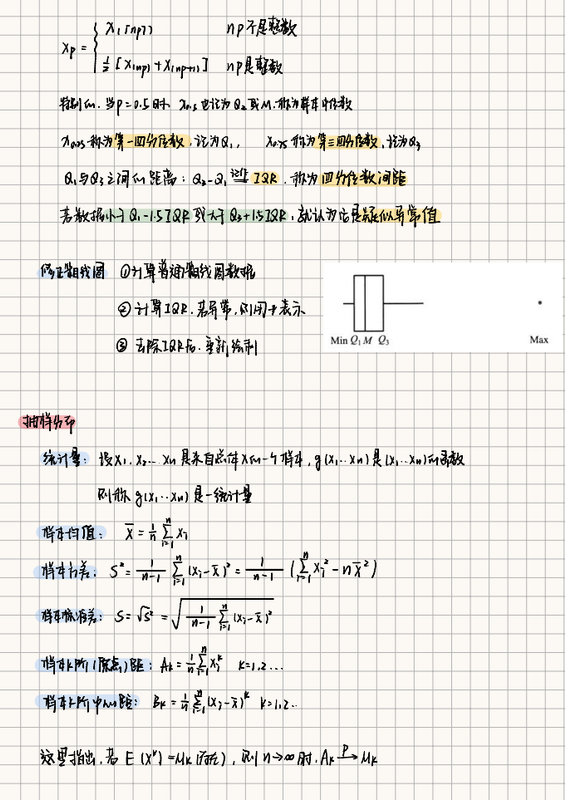 xp = { x([np]) np不是整数
½[x(np) + x(np+1)] np是整数
特别的，当p=0.5时 x0.5也记为Q2或M，称为样本中位数
x0.25称为第一四分位数，记为Q1， x0.75称为第三四分位数，记为Q3
Q1与Q3之间的距离：Q3-Q1 记为 IQR，称为四分位数间距
若数据小于Q1-1.5IQR或大于Q3+1.5IQR，就认为它是疑似异常值
修正箱线图 ①计算普通箱线图数据
②计算IQR，若异常，则用*表示
③去除IQR后，重新绘制
Min Q1 M Q3 Max
抽样分布
统计量：设x1, x2 ... xn是来自总体X的一个样本，g(x1...xn)是(x1...xn)的函数
则称g(x1...xn)是一统计量
样本均值： x̄ = 1/n Σ(i=1→n) xi
样本方差： S² = 1/(n-1) Σ(i=1→n) (xi-x̄)² = 1/(n-1) (Σ(i=1→n) xi² - nx̄²)
样本标准差： S = √S² = √(1/(n-1) Σ(i=1→n) (xi-x̄)²)
样本k阶(原点)矩： Ak = 1/n Σ(i=1→n) xi^k k=1,2...
样本k阶中心矩： Bk = 1/n Σ(i=1→n) (xi-x̄)^k k=1,2..
这里指出，若E(X^k)=μk(存在)，则n→∞时，Ak —P→ μk